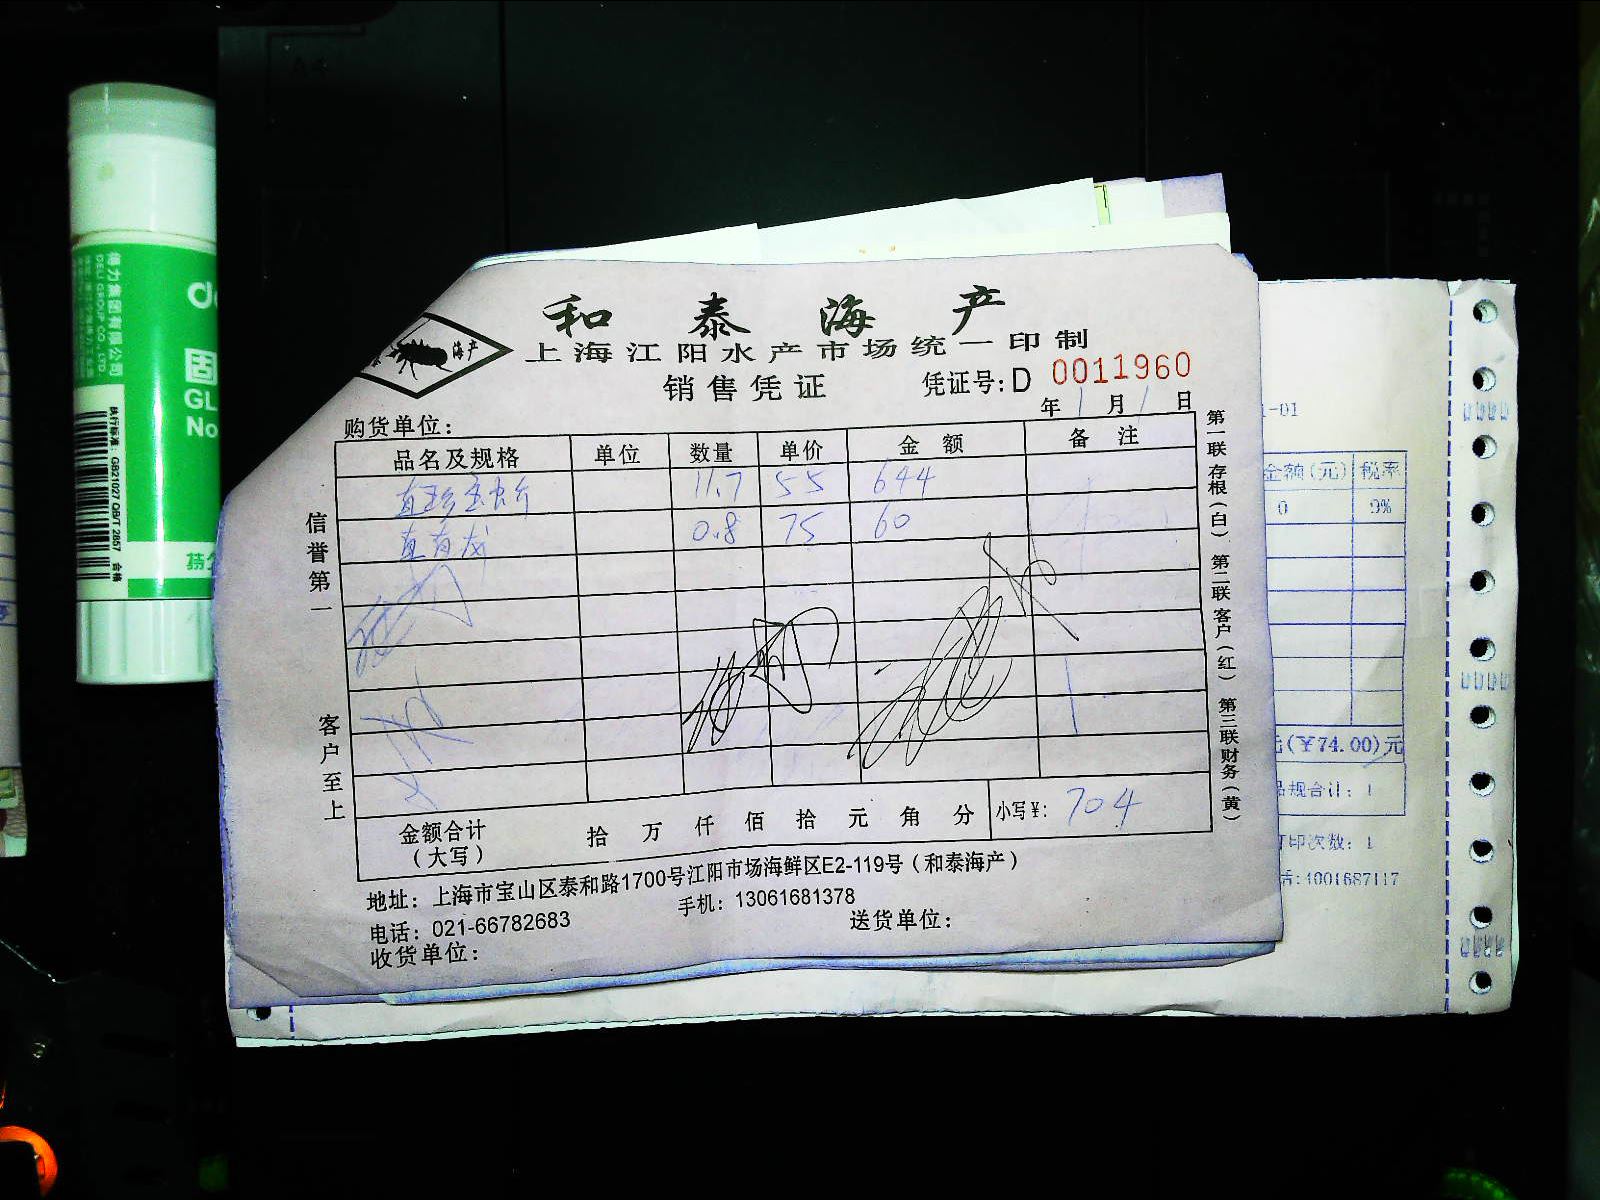 和泰海产
海产
上海江阳水产市场统一印制
销售凭证 凭证号:D 0011960
购货单位: 年 1 月 1 日
品名及规格 单位 数量 单价 金额 备注
11.7 55 644
0.8 75 60
金额合计(大写) 拾 万 仟 佰 拾 元 角 分 小写¥: 704
地址:上海市宝山区泰和路1700号江阳市场海鲜区E2-119号(和泰海产)
电话:021-66782683 手机:13061681378 送货单位:
收货单位:
信誉第一
客户至上
第一联存根(白) 第二联客户(红) 第三联财务(黄)
得力集团有限公司
DELI GROUP CO., LTD.
固
GL
No
执行标准:GB21027 QB/T 2857 合格
-01
金额(元) 税率
0 9%
(¥74.00)元
品规合计:1
打印次数:1
话:4001687117